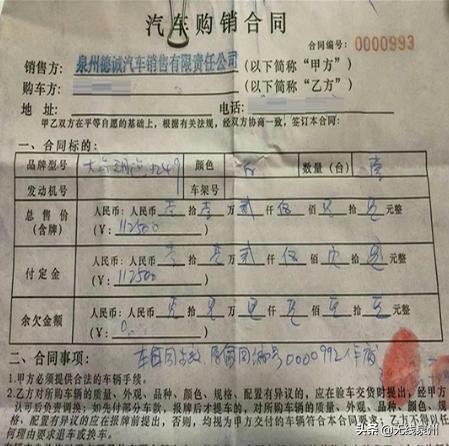 汽车购销合同
合同编号：0000993
销售方：泉州德诚汽车销售有限责任公司（以下简称“甲方”）
购车方：（以下简称“乙方”）
地 址： 电话：
甲乙双方在平等自愿的基础上，根据有关法规，经双方协商一致，签订本合同：
一、合同标的：
品牌型号 大众 1249 颜色 白 数量（台） 壹
发动机号 车架号
总售价（含牌） 人民币：人民币 壹 拾 壹 万 贰 仟 伍 佰 拾 元整
（¥：112500 ）
付定金 人民币：人民币 壹 拾 壹 万 贰 仟 伍 佰 拾 元整
（¥：112500 ）
余欠金额 人民币：人民币 拾 万 仟 佰 拾 元整
（¥：0 ）
二、合同事项： 合同编号0000992作废
1.甲方必须提供合法的车辆手续。
2.乙方对所购车辆的质量、外观、品种、颜色、规格、配置有异议的，应在验车交货时提出，经甲方
认可后免责调换；如先付部分车款，报牌后才提车的，对所购车辆的质量、外观、品种、颜色、规
格、配置有异议的应在报牌前提出，否则，均视为甲方交付的车辆符合本合同
理由要求退车或换车。
头条 @无线泉州